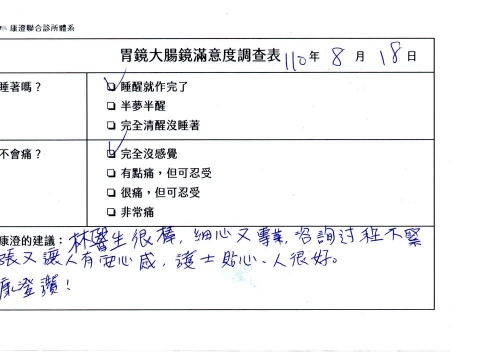 康澄聯合診所體系
胃鏡大腸鏡滿意度調查表 110年 8 月 18日
睡著嗎？
睡醒就作完了
半夢半醒
完全清醒沒睡著
不會痛？
完全沒感覺
有點痛，但可忍受
很痛，但可忍受
非常痛
康澄的建議：林醫生很棒，細心又專業，咨詢过程不緊
張又讓人有安心感，護士貼心、人很好。
康澄讚！